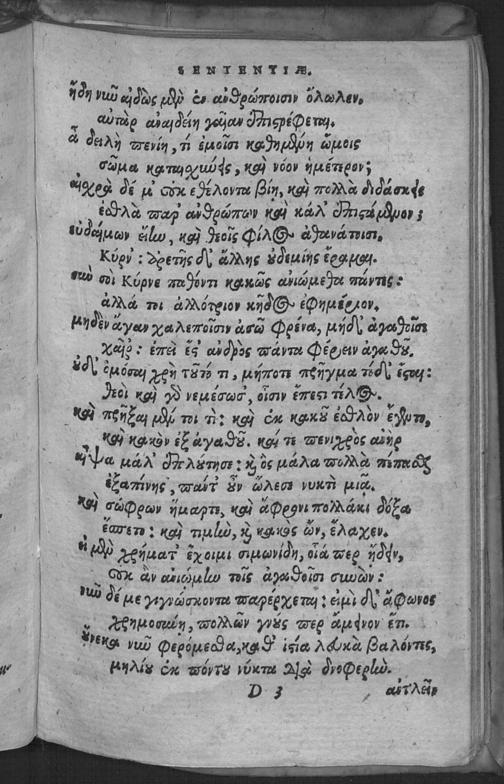 SENTENTIÆ.
ἤδη νῦν αἰδὼς μὲν ἐν ἀνθρώποισιν ὄλωλεν.
αὐτὰρ ἀναιδείη γαῖαν ἐπιστρέφεται.
ἆ δειλὴ πενίη, τί ἐμοῖσι καθημένη ὤμοις
σῶμα καταισχύνεις, καὶ νόον ἡμέτερον;
αἰσχρὰ δέ μ' οὐκ ἐθέλοντα βίῃ, καὶ πολλὰ διδάσκεις
ἐσθλὰ παρ' ἀνθρώπων καὶ κάλ' ἐπιστάμενον;
εὐδαίμων εἴην, καὶ θεοῖς φίλος ἀθανάτοισι.
Κύρν': ἀρετῆς δ' ἄλλης οὐδεμίης ἔραμαι.
σὺν σοὶ Κύρνε παθόντι κακῶς ἀνιώμεθα πάντες:
ἀλλά τοι ἀλλότριον κῆδος ἐφημέριον.
μηδὲν ἄγαν χαλεποῖσιν ἀσῶ φρένα, μηδ' ἀγαθοῖσι
χαῖρ': ἐπεὶ ἔς' ἀνδρὸς πάντα φέρειν ἀγαθοῦ.
οὐδ' ὀμόσαι χρὴ τοῦτό τι, μήποτε πρῆγμα τόδ' ἔσται:
θεοὶ καὶ γὰρ νεμέσως', οἷσιν ἔπεστι τέλος.
καὶ πρῆξαι μέν τοι τὶ: καὶ ἐκ κακοῦ ἐσθλὸν ἔγεντο,
καὶ κακὸν ἐξ ἀγαθοῦ. καί τε πενιχρὸς ἀνὴρ
αἶψα μάλ' ἐπλούτησε: καὶ ὃς μάλα πολλὰ πέπαται
ἐξαπίνης, πάντ' οὖν ὤλεσε νυκτὶ μιᾷ.
καὶ σώφρων ἥμαρτε, καὶ ἄφρονι πολλάκι δόξα
ἕσπετο: καὶ τιμὴν, καὶ κακὸς ὢν, ἔλαχεν.
εἰ μὲν χρήματ' ἔχοιμι σιμωνίδη, οἷά περ ἤδειν,
οὐκ ἂν ἀνιώμην τοῖς ἀγαθοῖσι συνών:
νῦν δέ με γιγνώσκοντα παρέρχεται: εἰμὶ δ' ἄφωνος
χρημοσύνῃ, πολλῶν γνούς περ ἄμεινον ἔτι.
οὕνεκα νῦν φερόμεσθα, καθ' ἱστία λευκὰ βαλόντες,
μηλίου ἐκ πόντου νύκτα διὰ δνοφερήν.
D 3 ἀντλεῖν